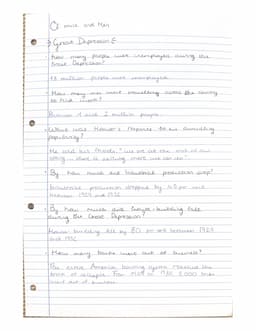 Great Depression
How many people were unemployed during the
Great Depression?
13 million people were unemployed
How many men were travelling across the country
to find work?
Between 1 and 2 million people.
What was Hoover's response to his
popularity?
He told his friends, "we are at the end of our
string... there is nothing more we can do."
By how much did industrial production drop?
Industrial production dropped by 45 per cent
between 1929 and 1932
By how much did house-building fall
during the Great Depression?
House-building fell by 80 per cent between 1929
and 1932
How many banks went out of business?
The entire American banking system reached the
brink of collapse. From 1929 to 1932 5,000 banks
went out of business